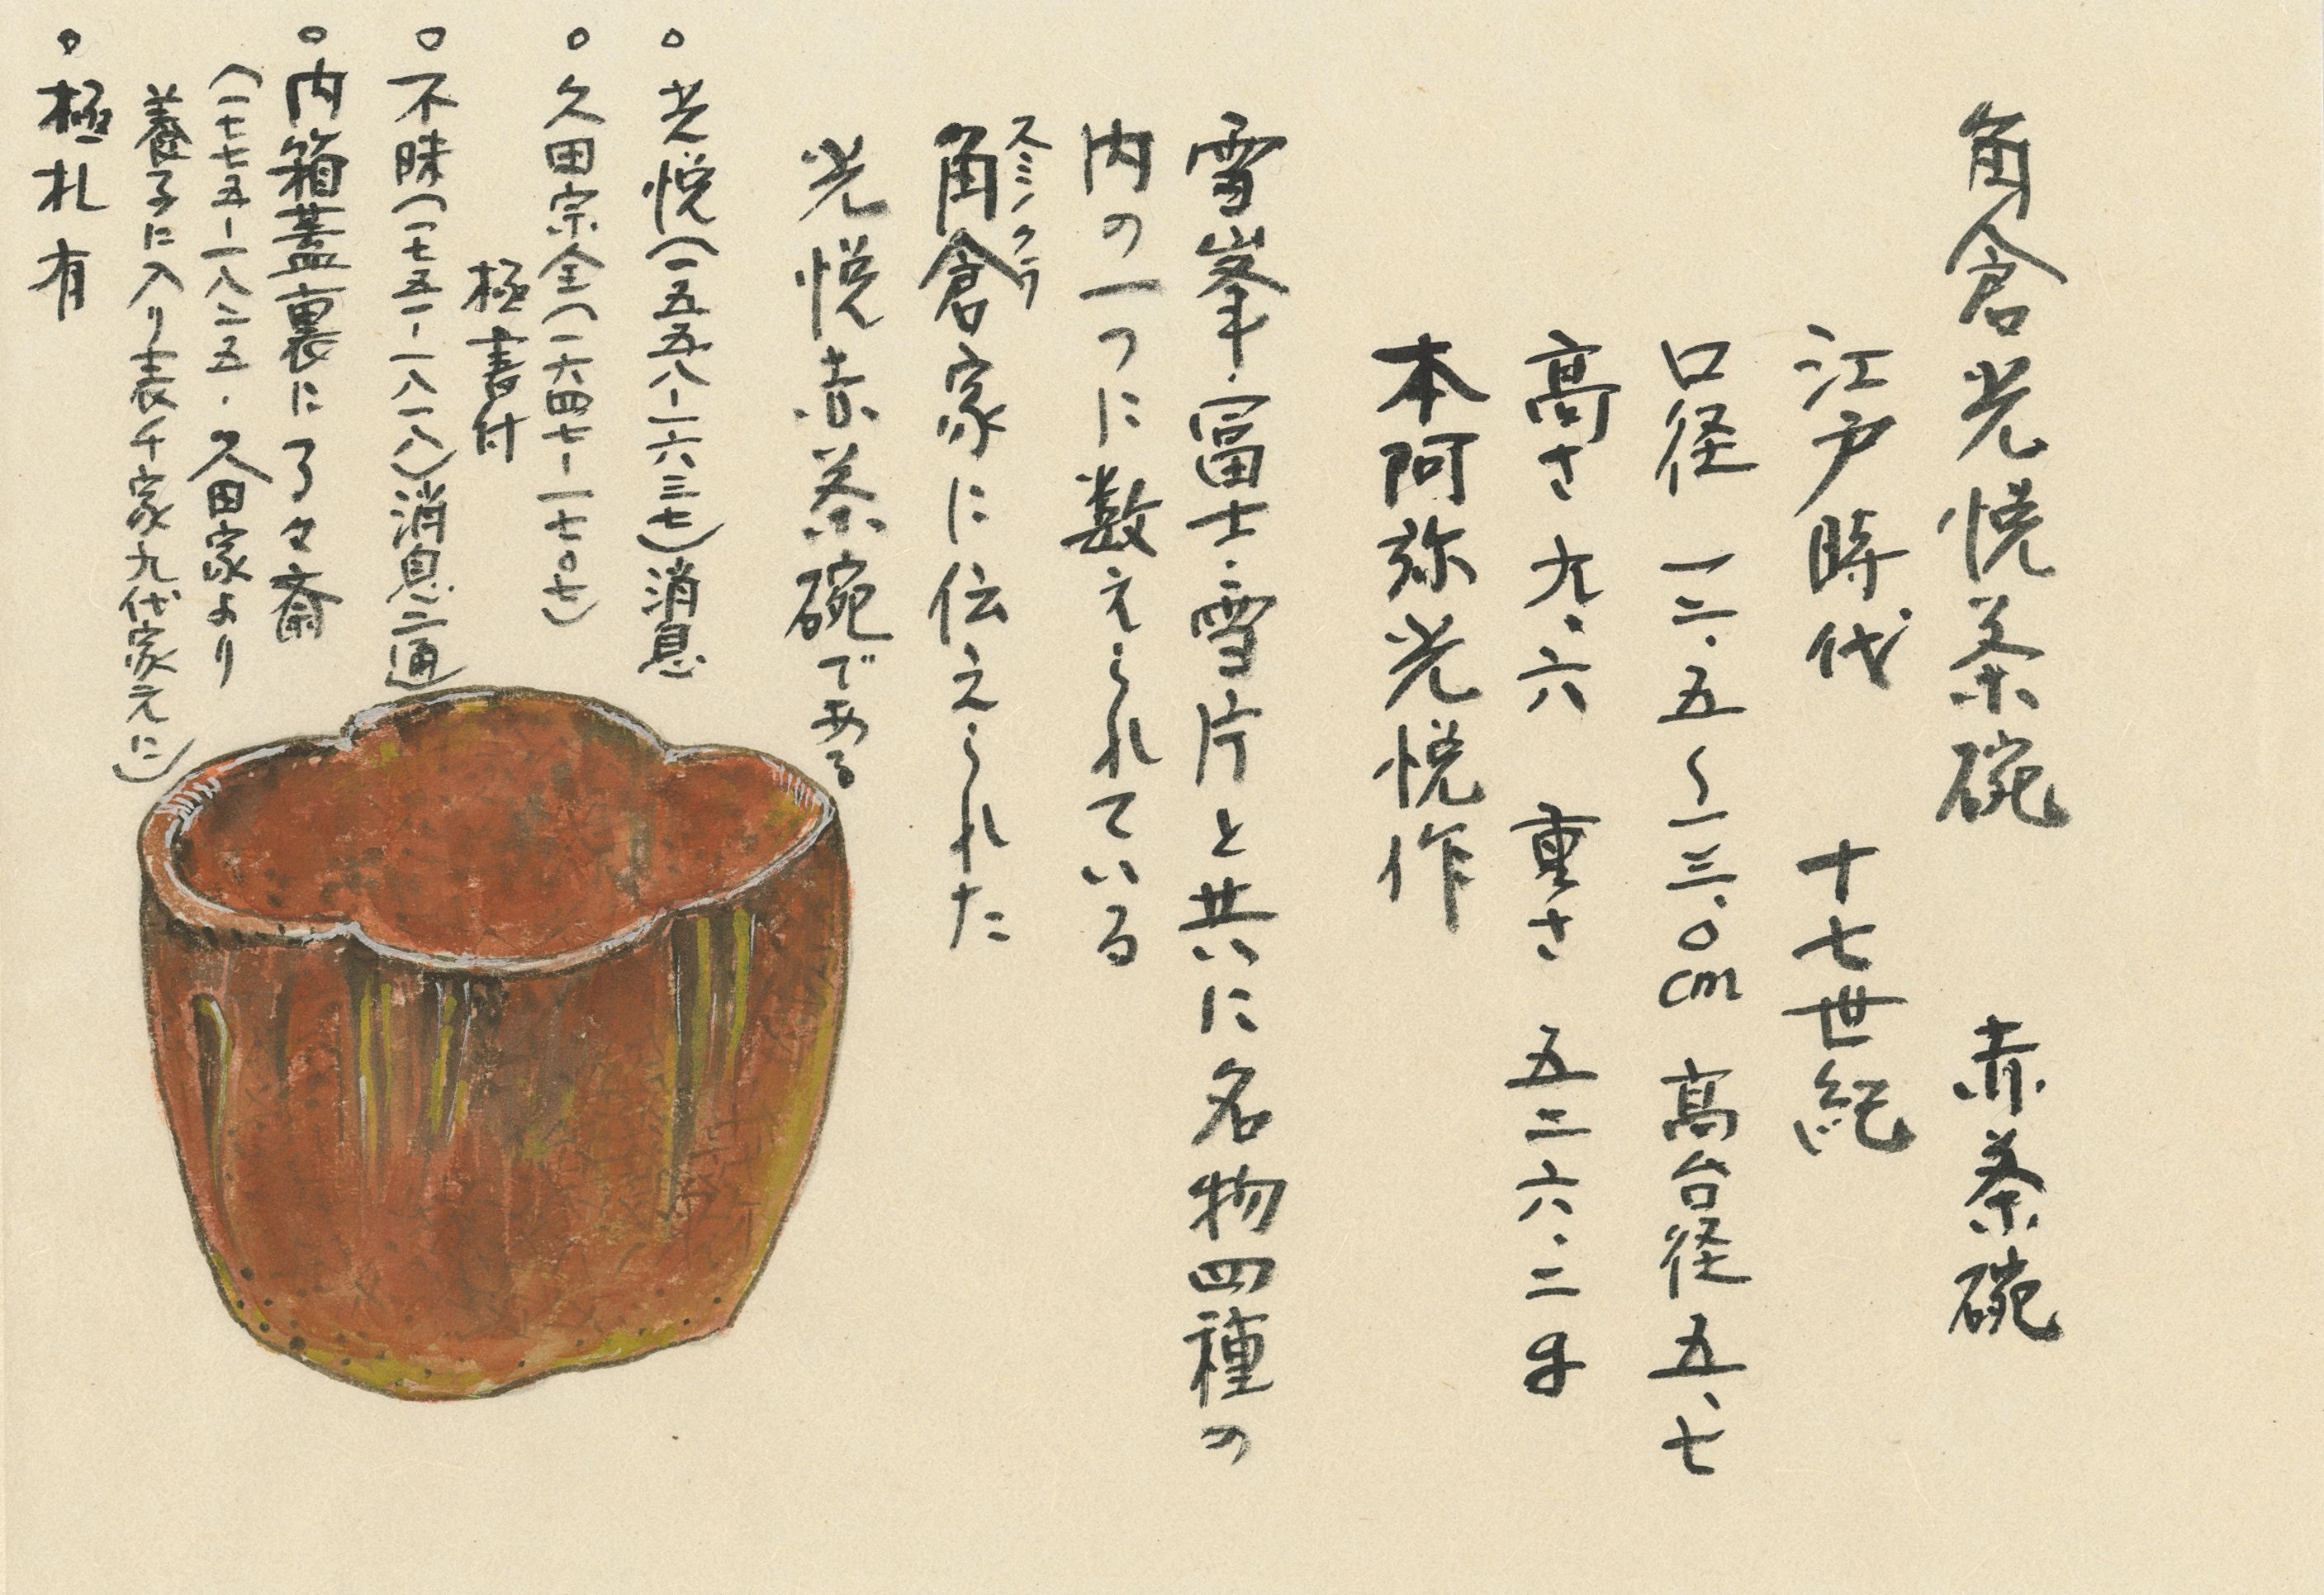 角倉光悦茶碗　赤茶碗
江戸時代　十七世紀
口径 一二.五〜一三.〇cm 高台径 五.七
高さ 九.六　重さ 五三六.二g
本阿弥光悦作
雪峯・富士・雪片と共に名物四種の
内の一つに数えられている
スミノクラ
角倉家に伝えられた
光悦赤茶碗である
○光悦(一五五八-一六三七)消息
○久田宗全(一六四七-一七〇七)
極書付
○不昧(一七五一-一八一八)消息二通
○内箱蓋裏に了々斎
(一七七五-一八二五・久田家より
養子に入り表千家九代家元に)
○極札有